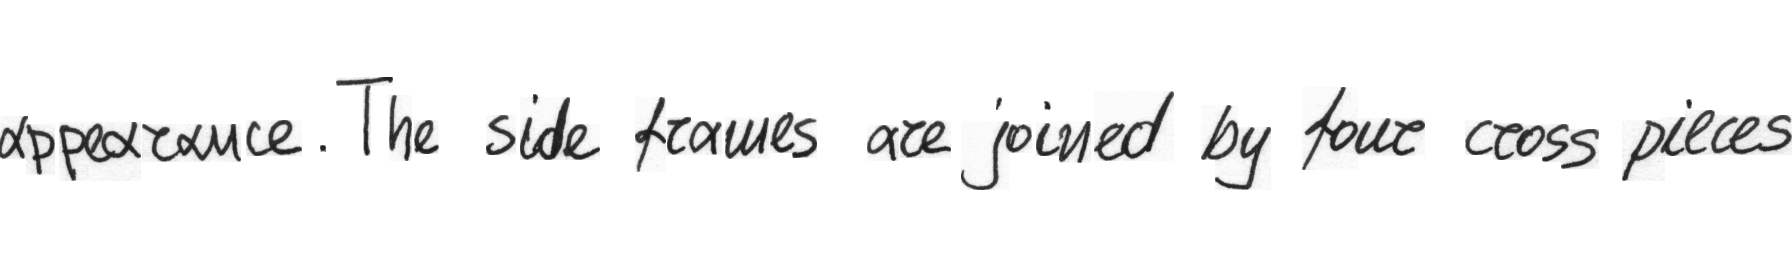 appearance. The side frames are joined by four cross pieces